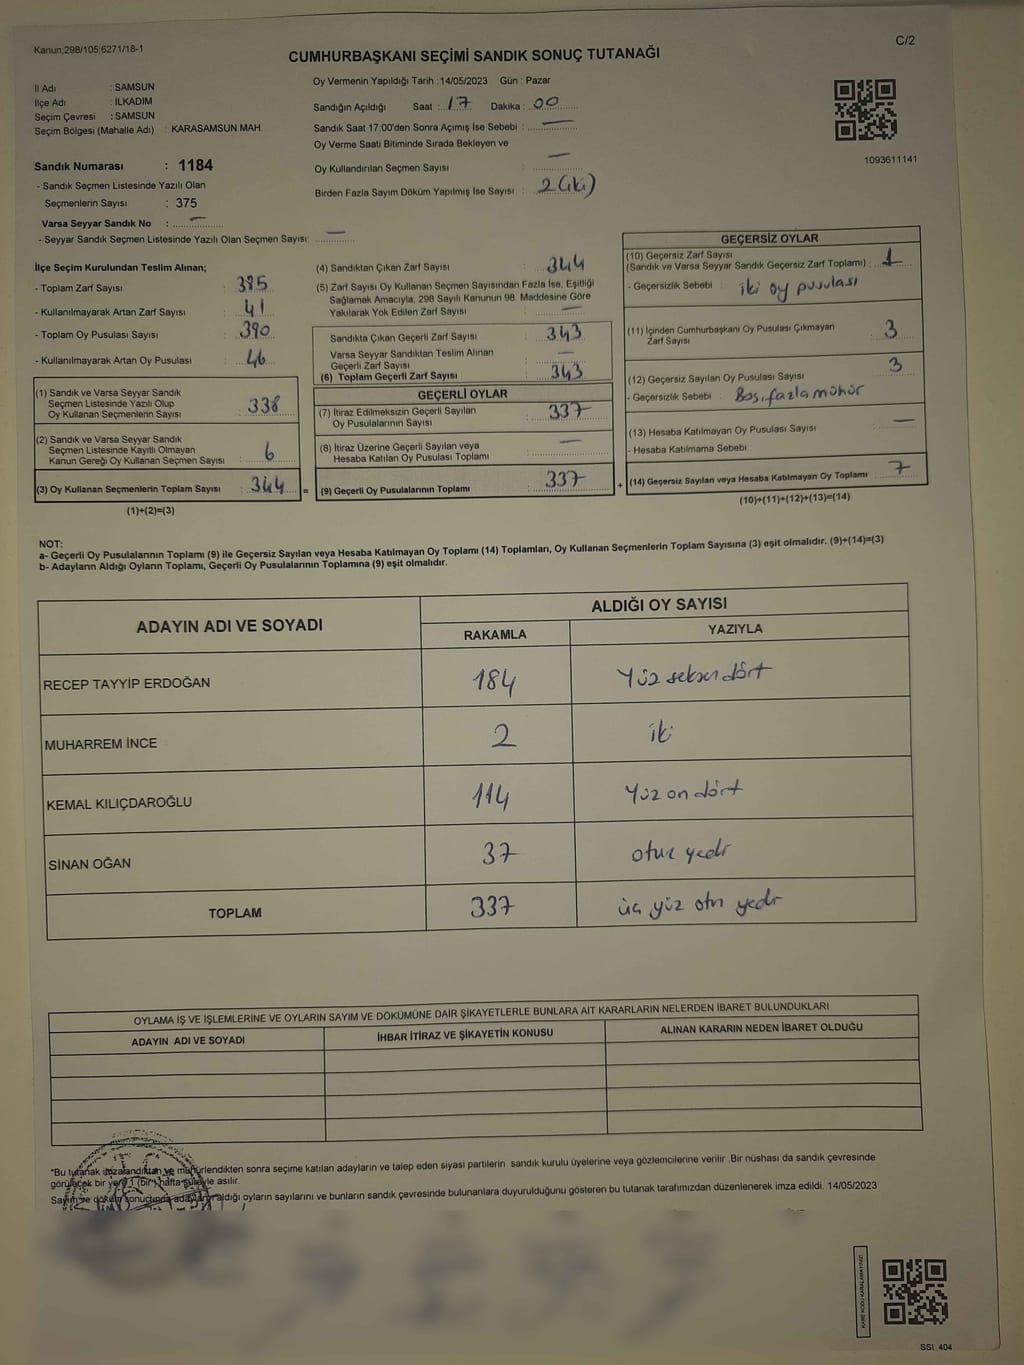 Kanun;298/105;6271/18-1
C/2
CUMHURBAŞKANI SEÇİMİ SANDIK SONUÇ TUTANAĞI
İl Adı : SAMSUN
İlçe Adı : İLKADIM
Seçim Çevresi : SAMSUN
Seçim Bölgesi (Mahalle Adı) : KARASAMSUN MAH.
Sandık Numarası : 1184
- Sandık Seçmen Listesinde Yazılı Olan
Seçmenlerin Sayısı : 375
Varsa Seyyar Sandık No : —
- Seyyar Sandık Seçmen Listesinde Yazılı Olan Seçmen Sayısı: —
Oy Vermenin Yapıldığı Tarih : 14/05/2023 Gün : Pazar
Sandığın Açıldığı Saat : 17 Dakika : 00
Sandık Saat 17:00'den Sonra Açımış İse Sebebi : —
Oy Verme Saati Bitiminde Sırada Bekleyen ve
Oy Kullandırılan Seçmen Sayısı : —
Birden Fazla Sayım Döküm Yapılmış İse Sayısı : 2 (iki)
1093611141
İlçe Seçim Kurulundan Teslim Alınan;
- Toplam Zarf Sayısı : 385
- Kullanılmayarak Artan Zarf Sayısı : 41
- Toplam Oy Pusulası Sayısı : 390
- Kullanılmayarak Artan Oy Pusulası : 46
(1) Sandık ve Varsa Seyyar Sandık
Seçmen Listesinde Yazılı Olup
Oy Kullanan Seçmenlerin Sayısı : 338
(2) Sandık ve Varsa Seyyar Sandık
Seçmen Listesinde Kayıtlı Olmayan
Kanun Gereği Oy Kullanan Seçmen Sayısı : 6
(3) Oy Kullanan Seçmenlerin Toplam Sayısı : 344 =
(1)+(2)=(3)
(4) Sandıktan Çıkan Zarf Sayısı : 344
(5) Zarf Sayısı Oy Kullanan Seçmen Sayısından Fazla İse, Eşitliği
Sağlamak Amacıyla, 298 Sayılı Kanunun 98. Maddesine Göre
Yakılarak Yok Edilen Zarf Sayısı : —
Sandıkta Çıkan Geçerli Zarf Sayısı : 343
Varsa Seyyar Sandıktan Teslim Alınan
Geçerli Zarf Sayısı : —
(6) Toplam Geçerli Zarf Sayısı : 343
GEÇERLİ OYLAR
(7) İtiraz Edilmeksizin Geçerli Sayılan
Oy Pusulalarının Sayısı : 337
(8) İtiraz Üzerine Geçerli Sayılan veya
Hesaba Katılan Oy Pusulası Toplamı : —
(9) Geçerli Oy Pusulalarının Toplamı : 337 +
GEÇERSİZ OYLAR
(10) Geçersiz Zarf Sayısı
(Sandık ve Varsa Seyyar Sandık Geçersiz Zarf Toplamı) : 1
- Geçersizlik Sebebi : iki oy pusulası
(11) İçinden Cumhurbaşkanı Oy Pusulası Çıkmayan
Zarf Sayısı : 3
(12) Geçersiz Sayılan Oy Pusulası Sayısı : 3
- Geçersizlik Sebebi : Boş, fazla mühür
(13) Hesaba Katılmayan Oy Pusulası Sayısı : —
- Hesaba Katılmama Sebebi :
(14) Geçersiz Sayılan veya Hesaba Katılmayan Oy Toplamı : 7
(10)+(11)+(12)+(13)=(14)
NOT:
a- Geçerli Oy Pusulalarının Toplamı (9) ile Geçersiz Sayılan veya Hesaba Katılmayan Oy Toplamı (14) Toplamları, Oy Kullanan Seçmenlerin Toplam Sayısına (3) eşit olmalıdır. (9)+(14)=(3)
b- Adayların Aldığı Oyların Toplamı, Geçerli Oy Pusulalarının Toplamına (9) eşit olmalıdır.
ADAYIN ADI VE SOYADI ALDIĞI OY SAYISI
RAKAMLA YAZIYLA
RECEP TAYYİP ERDOĞAN 184 Yüz seksen dört
MUHARREM İNCE 2 iki
KEMAL KILIÇDAROĞLU 114 Yüz on dört
SİNAN OĞAN 37 otuz yedi
TOPLAM 337 üç yüz otuz yedi
OYLAMA İŞ VE İŞLEMLERİNE VE OYLARIN SAYIM VE DÖKÜMÜNE DAİR ŞİKAYETLERLE BUNLARA AİT KARARLARIN NELERDEN İBARET BULUNDUKLARI
ADAYIN ADI VE SOYADI İHBAR İTİRAZ VE ŞİKAYETİN KONUSU ALINAN KARARIN NEDEN İBARET OLDUĞU
*Bu tutanak imzalandıktan ve mühürlendikten sonra seçime katılan adayların ve talep eden siyasi partilerin sandık kurulu üyelerine veya gözlemcilerine verilir .Bir nüshası da sandık çevresinde
görülecek bir yere 1 (bir) hafta süreyle asılır.
Sayım ve döküm sonucunda adayların aldığı oyların sayılarını ve bunların sandık çevresinde bulunanlara duyurulduğunu gösteren bu tutanak tarafımızdan düzenlenerek imza edildi. 14/05/2023
KARE KODU KARALAMAYINIZ!
SSI_404